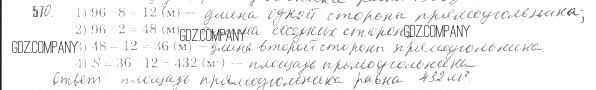 570. 1) 96 : 8 = 12 (м) – длина одной стороны прямоугольника;
2) 96 : 2 = 48 (м) – сумма соседних сторон
GDZ.COMPANY
GDZ.COMPANY
3) 48 – 12 = 36 (м) – длина второй стороны прямоугольника
4) S = 36 · 12 = 432 (м²) – площадь прямоугольника
Ответ: площадь прямоугольника равна 432 м².